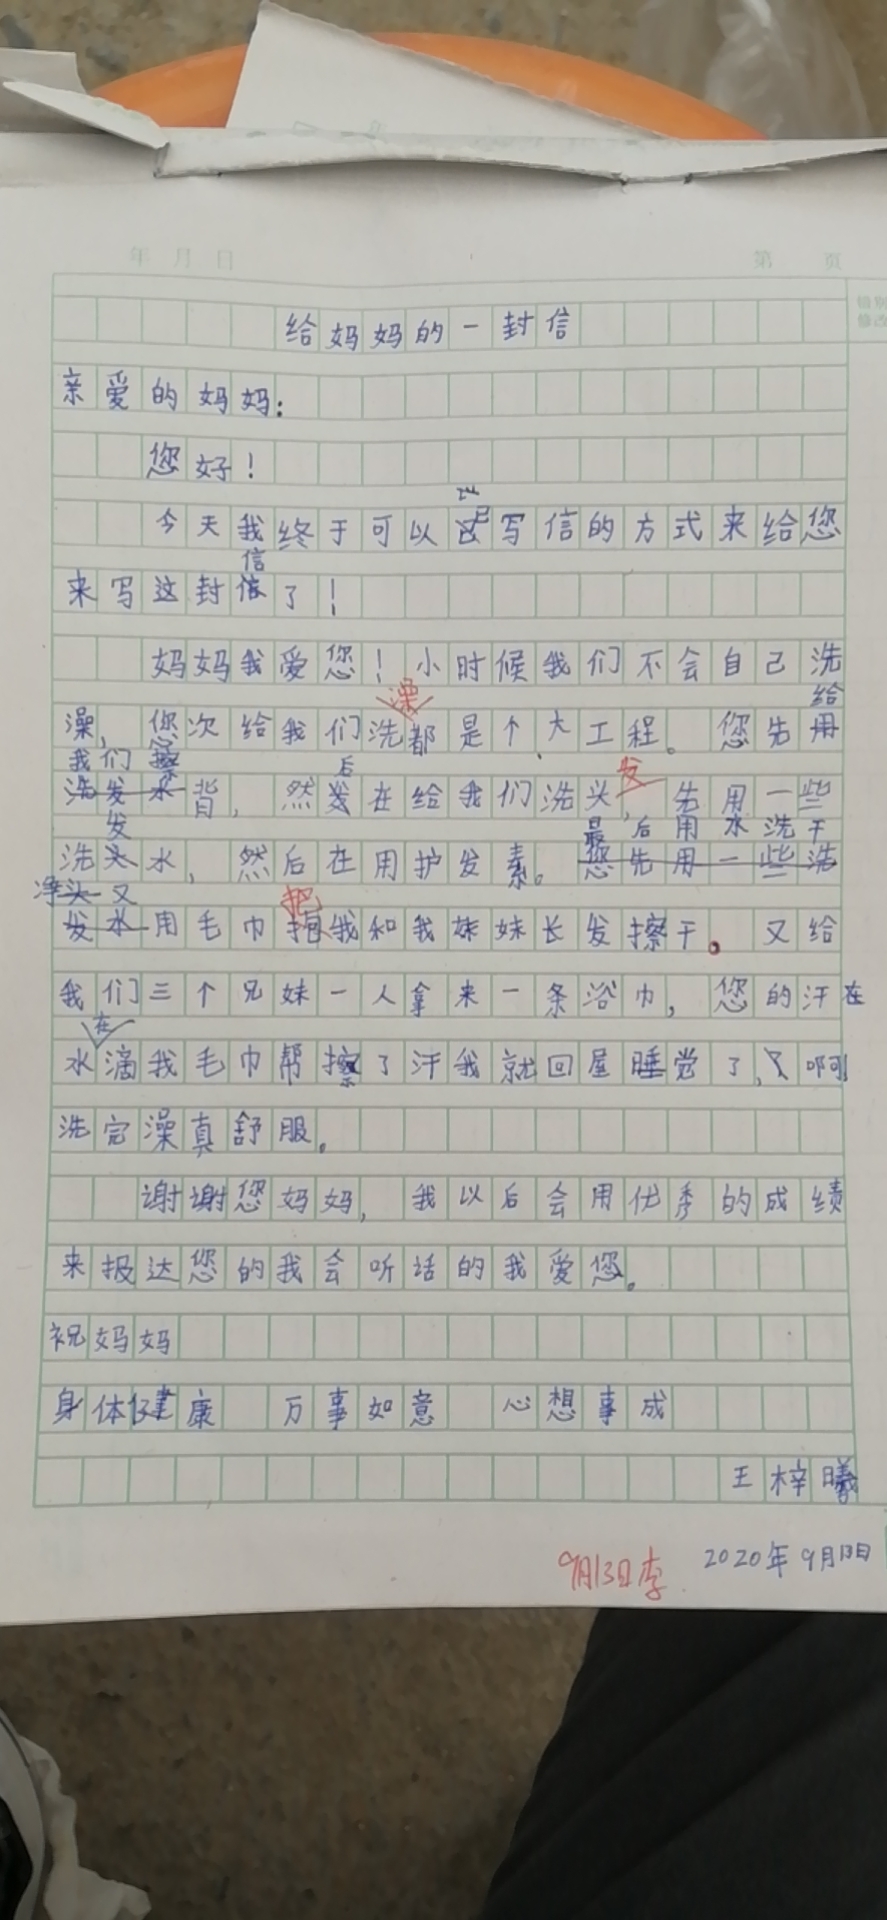 年 月 日
第 页
给妈妈的一封信
亲爱的妈妈:
您好!
今天我终于可以写信的方式来给您
信
来写这封信了!
妈妈我爱您!小时候我们不会自己洗
澡
给
澡,您次给我们洗都是个大工程。您先用
我们擦
后
发
洗发水背,然发在给我们洗头,先用一些
发
最后用水洗干
洗头水,然后在用护发素。您先用一些洗
净头又
把
发水用毛巾抱我和我妹妹长发擦干。又给
我们三个兄妹一人拿来一条浴巾,您的汗在
在
水滴我毛巾帮擦了汗我就回屋睡觉了,啊
洗完澡真舒服。
谢谢您妈妈,我以后会用优秀的成绩
来报达您的我会听话的我爱您。
祝妈妈
身体健康 万事如意 心想事成
王梓曦
9月13日李
2020年9月13日